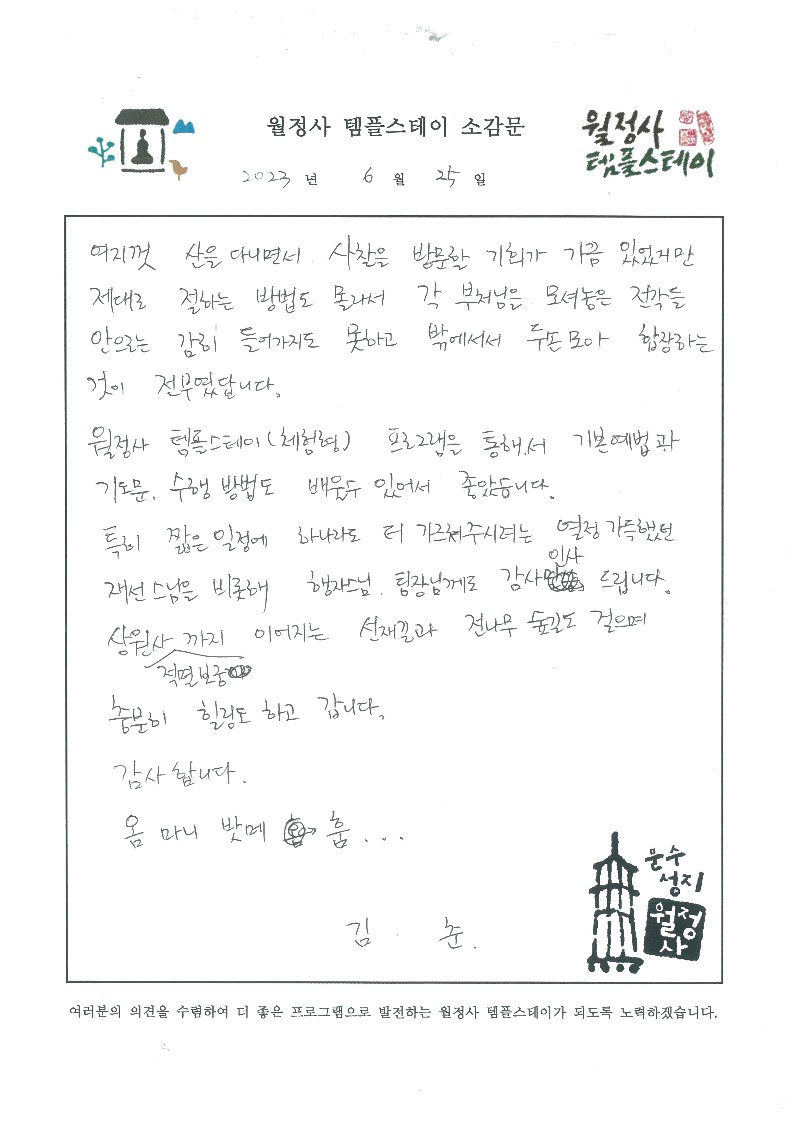 월정사 템플스테이 소감문
월정사
템플스테이
2023 년 6 월 25 일
여지껏 산을 다니면서 사찰을 방문할 기회가 가끔 있었지만
제대로 절하는 방법도 몰라서 각 부처님을 모셔놓은 전각들
안으로는 감히 들어가지도 못하고 밖에서서 두손모아 합장하는
것이 전부였답니다.
월정사 템플스테이(체험형) 프로그램을 통해서 기본예법과
기도문, 수행 방법도 배울수 있어서 좋았습니다.
특히 짧은 일정에 하나라도 더 가르쳐주시려는 열정 가득했던
재선스님을 비롯해 행자스님, 팀장님께도 감사인사 드립니다.
상원사 적멸보궁까지 이어지는 선재길과 전나무 숲길도 걸으며
충분히 힐링도 하고 갑니다.
감사합니다.
옴 마니 밧메 훔...
김 춘.
문수
성지
월정
사
여러분의 의견을 수렴하여 더 좋은 프로그램으로 발전하는 월정사 템플스테이가 되도록 노력하겠습니다.